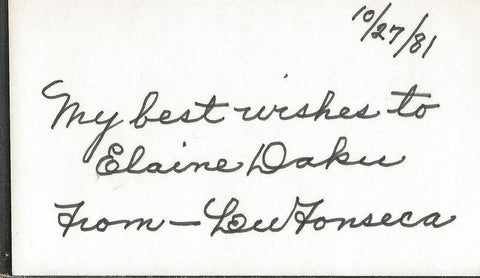 10/27/81
My best wishes to
Elaine Daku
From — Lew Fonseca